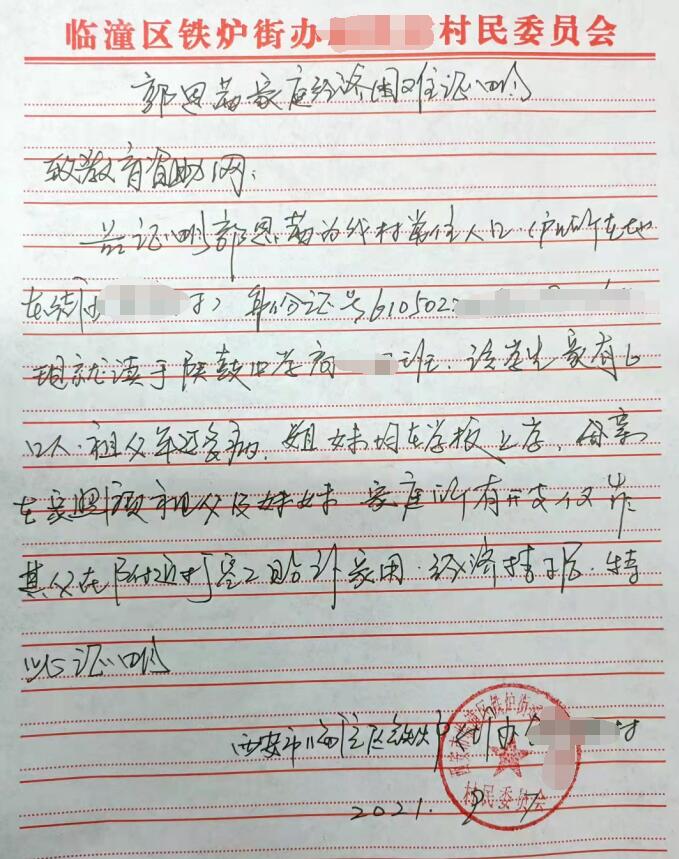 临潼区铁炉街办 村民委员会
郭思茜家庭经济困难证明
致教育资助网:
兹证明郭思茜为我村常住人口(户口所在地
在 身份证号610502
现就读于陕鼓中学高 班.该学生家有6
口人.祖父年迈多病,姐妹均在学校上学,母亲
在家照顾祖父及妹妹 家庭所有开支仅靠
其父在附近打零工贴补家用.经济拮据.特
此证明
西安市临潼区铁炉街办 村
2021. 9
西安市临潼区铁炉街
村民委员会